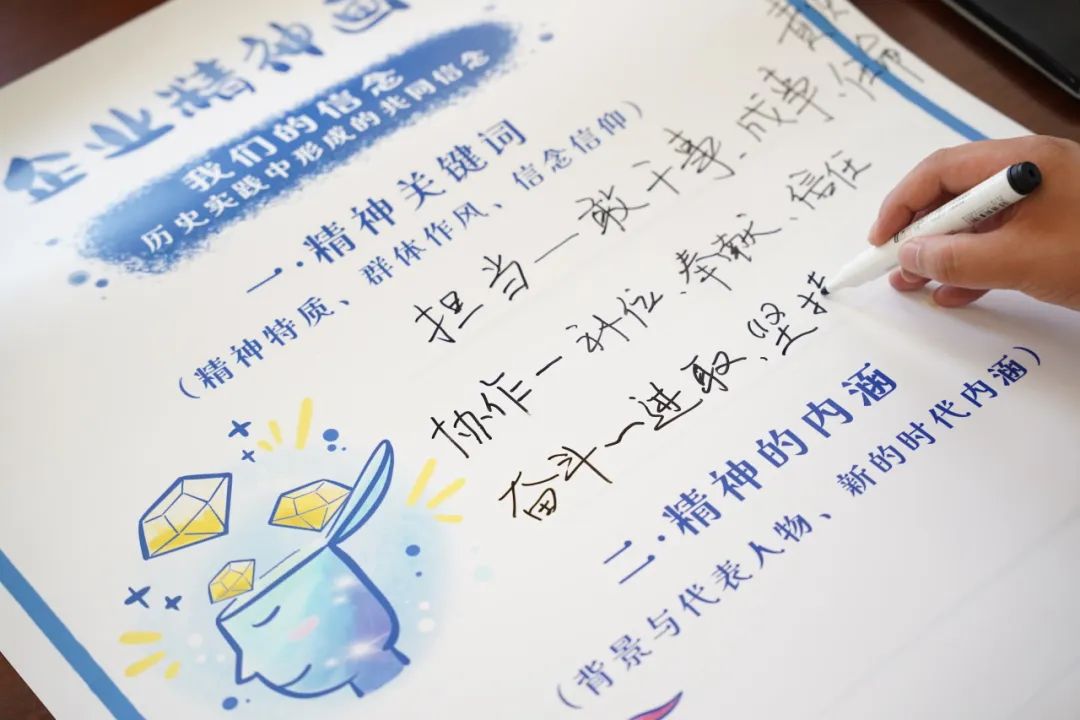 企业精神画
我们的信念
历史实践中形成的共同信念
一·精神关键词
(精神特质、群体作风、信念信仰)
担当—敢干事、成事、
协作—补位、奉献、信任
奋斗—进取、坚持
二·精神的内涵
(背景与代表人物、新的时代内涵)